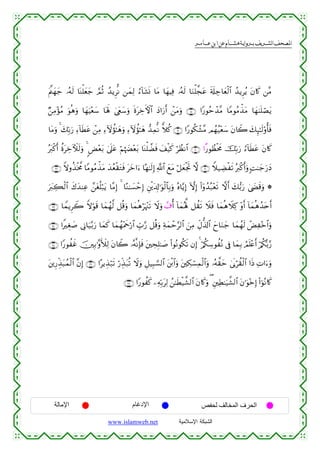 المصحف الشريف برواية هشام عن ابن عامر
مَّن كَانَ يُرِيدُ ٱلْعَاجِلَةَ عَجَّلْنَا لَهُۥ فِيهَا مَا نَشَآءُ لِمَن نُّرِيدُ ثُمَّ جَعَلْنَا لَهُۥ جَهَنَّمَ
يَصْلَىٰهَا مَذْمُومًا مَّدْحُورًا ۝ وَمَنْ أَرَادَ ٱلْأَخِرَةَ وَسَعَىٰ لَهَا سَعْيَهَا وَهُوَ مُؤْمِنٌ
فَأُو۟لَٰٓئِكَ كَانَ سَعْيُهُم مَّشْكُورًا ۝ كُلًّا نُّمِدُّ هَٰٓؤُلَآءِ وَهَٰٓؤُلَآءِ مِنْ عَطَآءِ رَبِّكَ ۚ وَمَا
كَانَ عَطَآءُ رَبِّكَ مَحْظُورًا ۝ ٱنظُرْ كَيْفَ فَضَّلْنَا بَعْضَهُمْ عَلَىٰ بَعْضٍ ۚ وَلَلْأَخِرَةُ أَكْبَرُ
دَرَجَٰتٍ وَأَكْبَرُ تَفْضِيلًا ۝ لَّا تَجْعَلْ مَعَ ٱللَّهِ إِلَٰهًا ءَاخَرَ فَتَقْعُدَ مَذْمُومًا مَّخْذُولًا ۝
۞ وَقَضَىٰ رَبُّكَ أَلَّا تَعْبُدُوٓا۟ إِلَّآ إِيَّاهُ وَبِٱلْوَٰلِدَيْنِ إِحْسَٰنًا ۚ إِمَّا يَبْلُغَنَّ عِندَكَ ٱلْكِبَرَ
أَحَدُهُمَآ أَوْ كِلَاهُمَا فَلَا تَقُل لَّهُمَآ أُفَّ وَلَا تَنْهَرْهُمَا وَقُل لَّهُمَا قَوْلًا كَرِيمًا ۝
وَٱخْفِضْ لَهُمَا جَنَاحَ ٱلذُّلِّ مِنَ ٱلرَّحْمَةِ وَقُل رَّبِّ ٱرْحَمْهُمَا كَمَا رَبَّيَانِى صَغِيرًا ۝
رَّبُّكُمْ أَعْلَمُ بِمَا فِى نُفُوسِكُمْ ۚ إِن تَكُونُوا۟ صَٰلِحِينَ فَإِنَّهُۥ كَانَ لِلْأَوَّٰبِينَ غَفُورًا ۝
وَءَاتِ ذَا ٱلْقُرْبَىٰ حَقَّهُۥ وَٱلْمِسْكِينَ وَٱبْنَ ٱلسَّبِيلِ وَلَا تُبَذِّرْ تَبْذِيرًا ۝ إِنَّ ٱلْمُبَذِّرِينَ
كَانُوٓا۟ إِخْوَٰنَ ٱلشَّيَٰطِينِ ۖ وَكَانَ ٱلشَّيْطَٰنُ لِرَبِّهِۦ كَفُورًا ۝
الحرف المخالف لحفص الإدغام الإمالة
www.islamweb.net الشبكة الإسلامية